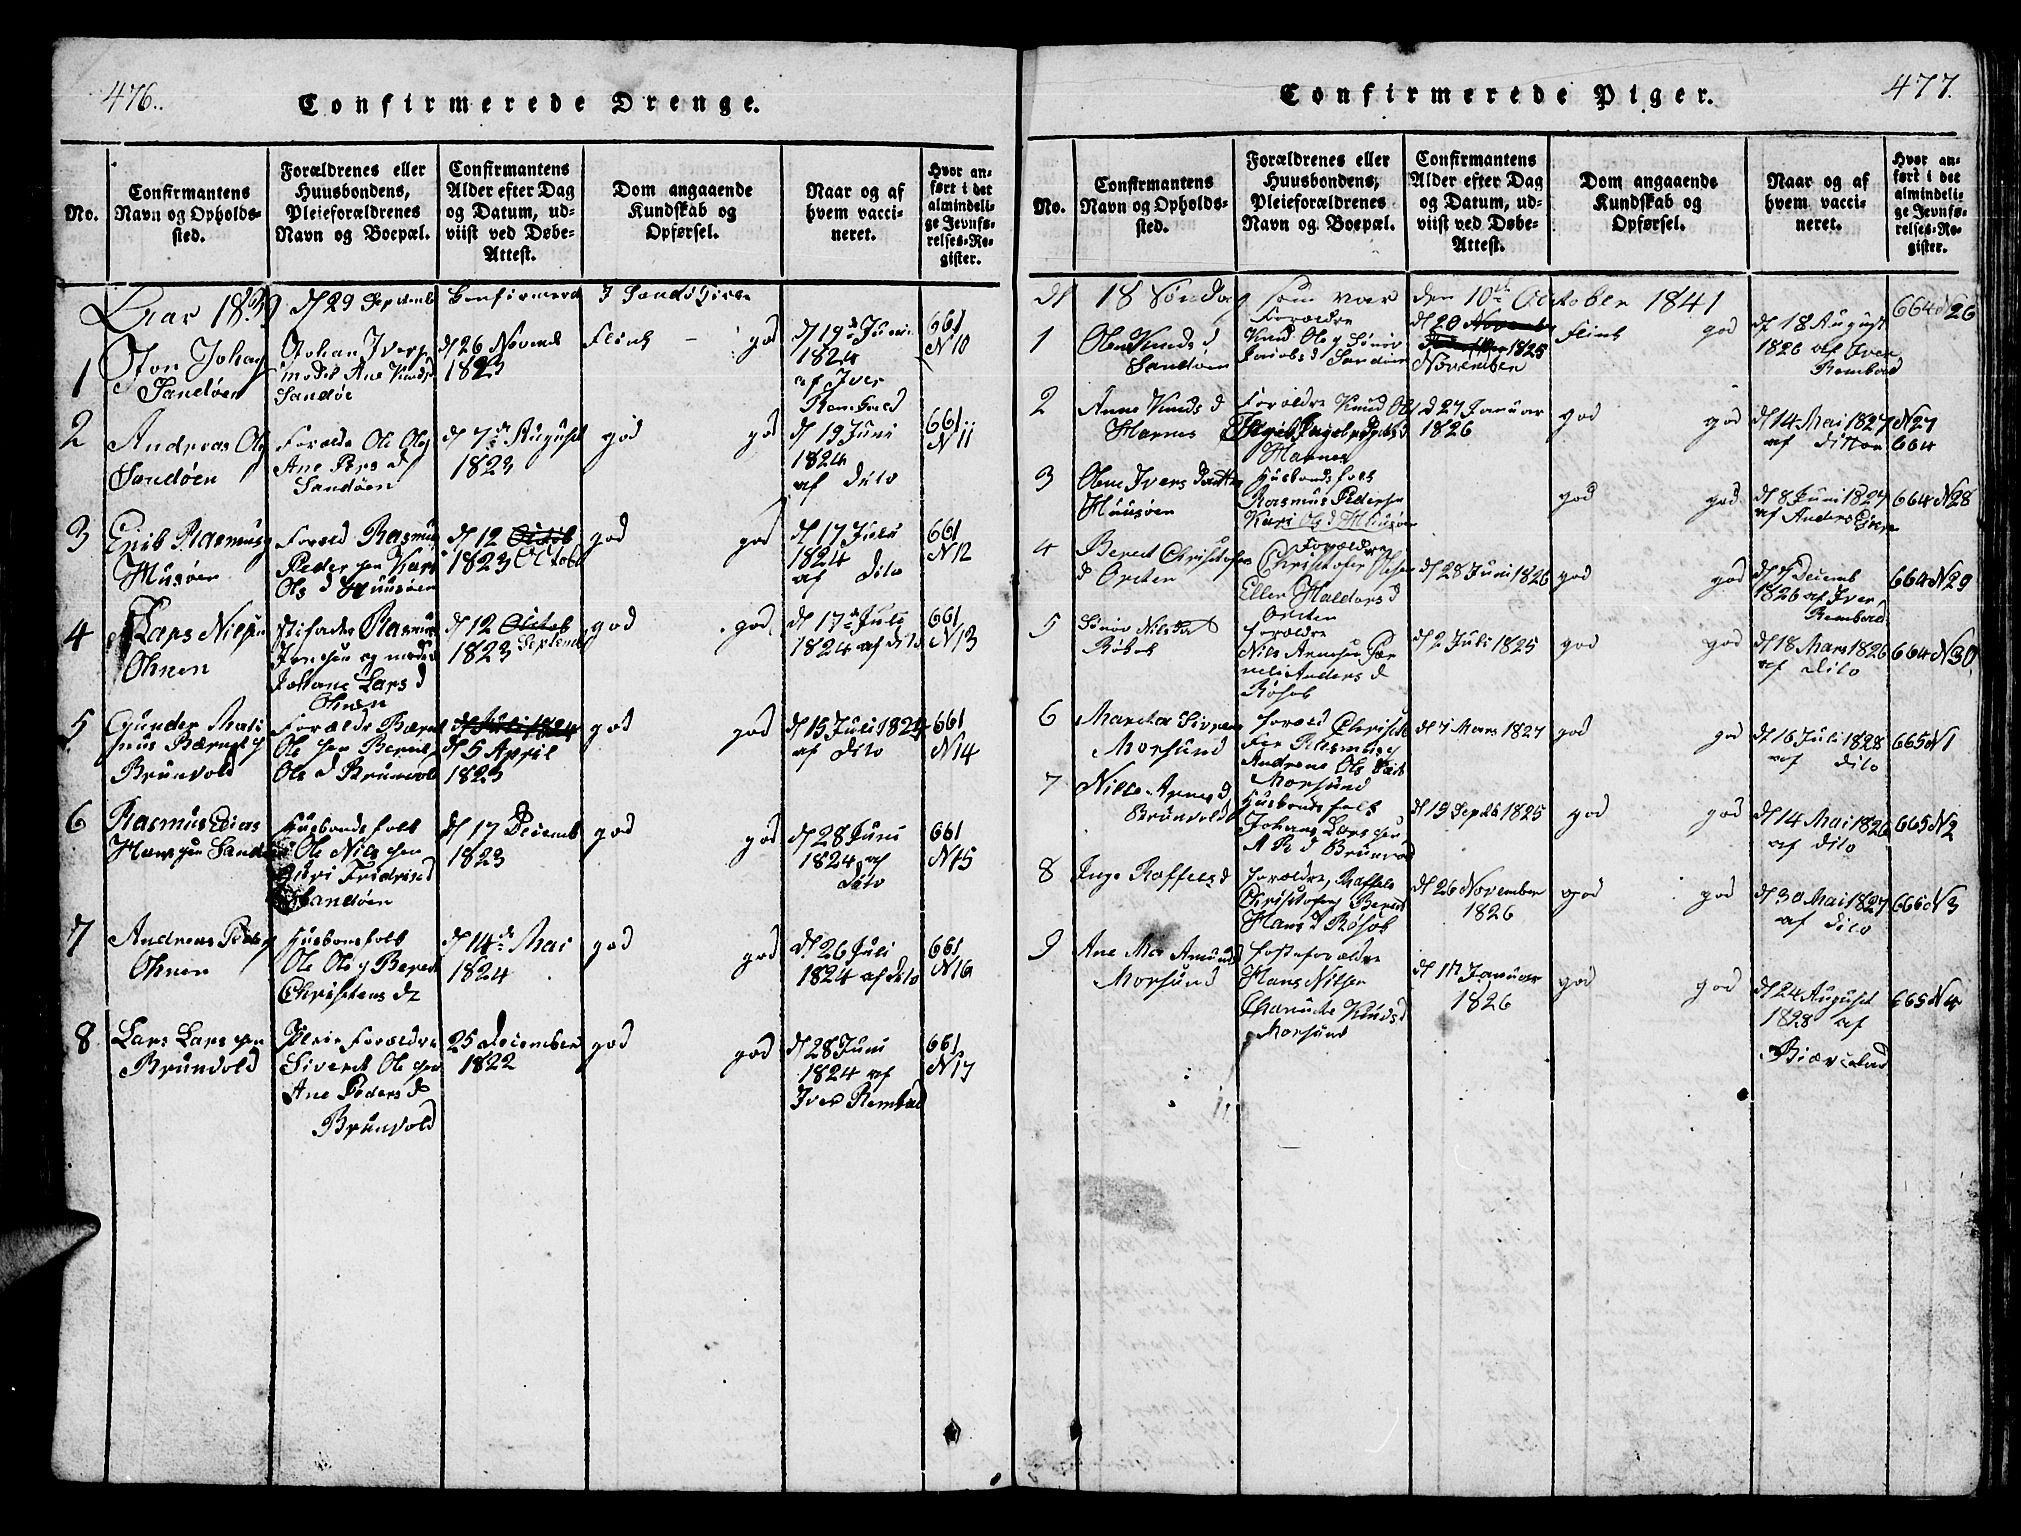 476.
Confirmerede Drenge.
No.
Confirmantens Navn og Opholdssted.
Forældrenes eller Huusbondens, Pleieforældrenes Navn og Boepæl.
Confirmantens Alder efter Dag og Datum, udviist ved Døbe-Attest.
Dom angaaende Kundskab og Opførsel.
Naar og af hvem vaccineret.
Hvor anført i det almindelige Jevnførelses-Register.
Aar 1839 d 29 Septemb Confirmered I Sandø
1
Johan
Sandøen
Johan Ivers
moder Ane Knuds
Sandøe
d 26 Novemb
1823
Flink god
d 19 Juni
1824
af Iver
Rembold
661
N 10
2
Andreas Ols
Sandøen
Foræld Ole Ols
Ane Pers d
Sandøen
d 7de August
1823
god god
d 19 Juni
1824
af dito
661
N 11
3
Erik Rasmus
Huusøen
Foræld Rasmus
Pedersen Kari
Ols d Huusøen
d 12 Octob
1823 Octob
god god
d 17 Juli
1824
af dito
661
N 12
4
Lars Nilsen
Ohnen
Stifader Rasmus
og moder
Johane Lars d
Ohnen
d 12 Octob
1823 Septemb
god god
d 17de Juli
1824 af dito
661
N 13
5
Gunder Mati
nus Bærnts
Brunvold
Forældr Bærnt
Olesen Beret
Ols d Brunvold
d Juli 1824
d 5 April
1823
god god
d 15 Juli 1824
af dito
661
N 14
6
Rasmus Edias
Hanssen Sandø
Husbondsfolk
Ole Nilssen
Guri Fredriks d
Sandøen
d 17 Decemb
1823
god god
d 28 Juni
1824 af
dito
661
N 15
7
Andreas Peders
Ohnen
Husbonsfolk
Ole Ols Beret
Christens d
d 14de Mai
1824
god god
d 26 Juli
1824 af dito
661
N 16
8
Lars Larssen
Brunvold
Pleie Forældre
Sivert Olesen
Ane Peders d
Brunvold
25 December
1822
god god
d 28 Juni
1824 af
Iver Rembold
661
N 17
477.
Confirmerede Piger.
No.
Confirmantens Navn og Opholdssted.
Forældrenes eller Huusbondens, Pleieforældrenes Navn og Boepæl.
Confirmantens Alder efter Dag og Datum, udviist ved Døbe-Attest.
Dom angaaende Kundskab og Opførsel.
Naar og af hvem vaccineret.
Hvor anført i det almindelige Jevnførelses-Register.
d 18 Søndag som var den 10de October 1841
1
Oline Knuds d
Sandøen
Forældre
Knud Ols Sønøv
Jacobs d Sandøen
d 20 Novemb
1825
November
Flink god
d 18 August
1826 af Iver
Rembold
664 N 26
2
Anne Knuds d
Harnes
Forældre Knud Ols
Harnes
d 27 Januar
1826
god god
d 14 Mai 1827
af ditto
N 27
664
3
Oline Ivers datter
Huusøen
Husbondsfolk
Rasmus Pedersen
Kari Ols d Huusøen
god god
d 8 Juni 1827
af Anders
664 N 28
4
Beret Christofers
d Orten
Forældre
Christofer Olsen
Ellen Haldors d
Orten
d 28 Juni 1826
god god
d 7 Decemb
1826 af Iver
Rembold
664 N 29
5
Sønøv Nils dat
Røsok
Forældre
Nils Arnesen Per
nele Anders d
Røsok
d 2 Juli 1825
god god
d 18 Mars 1826
af dito
664 N 30
6
Martha
Morsund
Foræld Christo
fer Rasmus
Andrene Ols dat
Morsund
d 7 Mars 1827
god god
d 16 Juli 1828
af dito
665 N 1
7
Arnes d
Brunvold
Husbondsfolk
Johans Larssen
Brunvold
d 19 Septb 1825
god god
d 14 Mai 1826
af dito
665 N 2
8
Inge Raffels d
Forældre, Raffels
Christofers Beret
Hans d Røsok
d 26 November
1826
god god
d 30 Mai 1827
af dito
N 3
9
Ane Mar Amunds
Morsund
Fosteforældre
Hans Nilsen
Knuds d
Morsund
d 17 Januar
1826
god god
d 24 August
1828 af
665 N 4